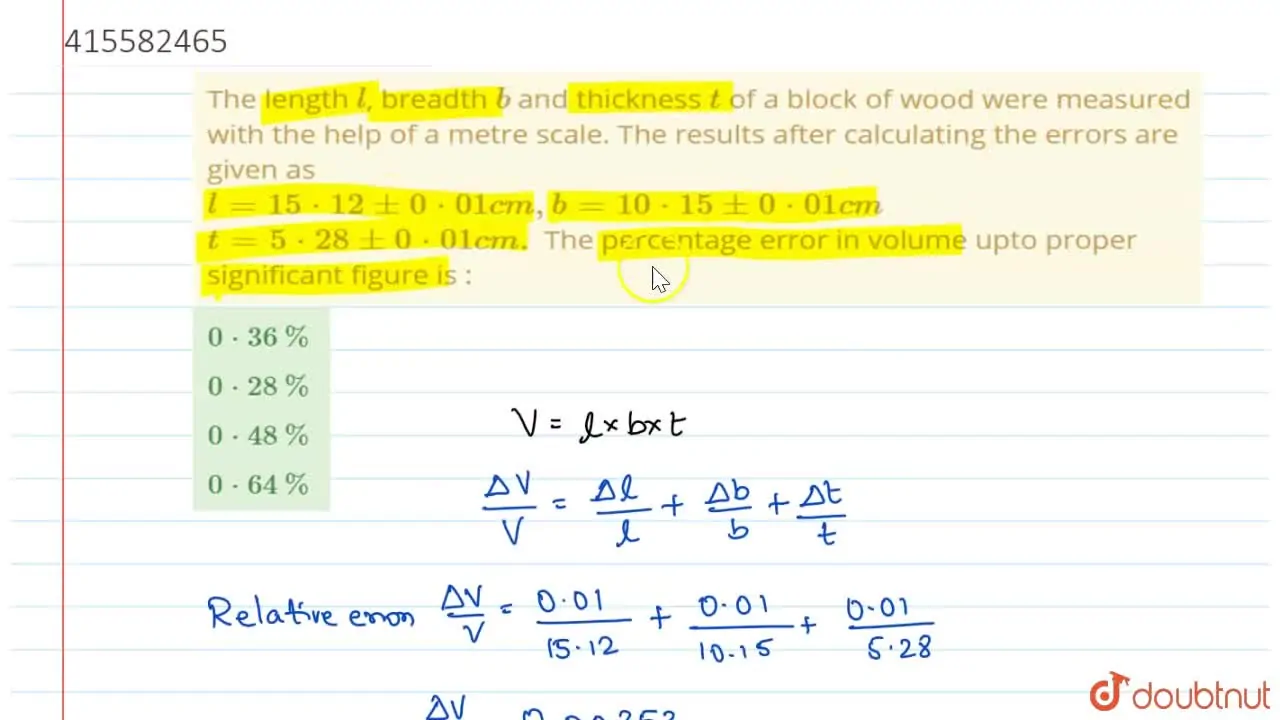 415582465
The length l, breadth b and thickness t of a block of wood were measured
with the help of a metre scale. The results after calculating the errors are
given as
l = 15 · 12 ± 0 · 01cm, b = 10 · 15 ± 0 · 01cm
t = 5 · 28 ± 0 · 01cm. The percentage error in volume upto proper
significant figure is :
0 · 36 %
0 · 28 %
0 · 48 %
0 · 64 %
V = l × b × t
ΔV/V = Δl/l + Δb/b + Δt/t
Relative error ΔV/V = 0.01/15.12 + 0.01/10.15 + 0.01/5.28
ΔV
doubtnut